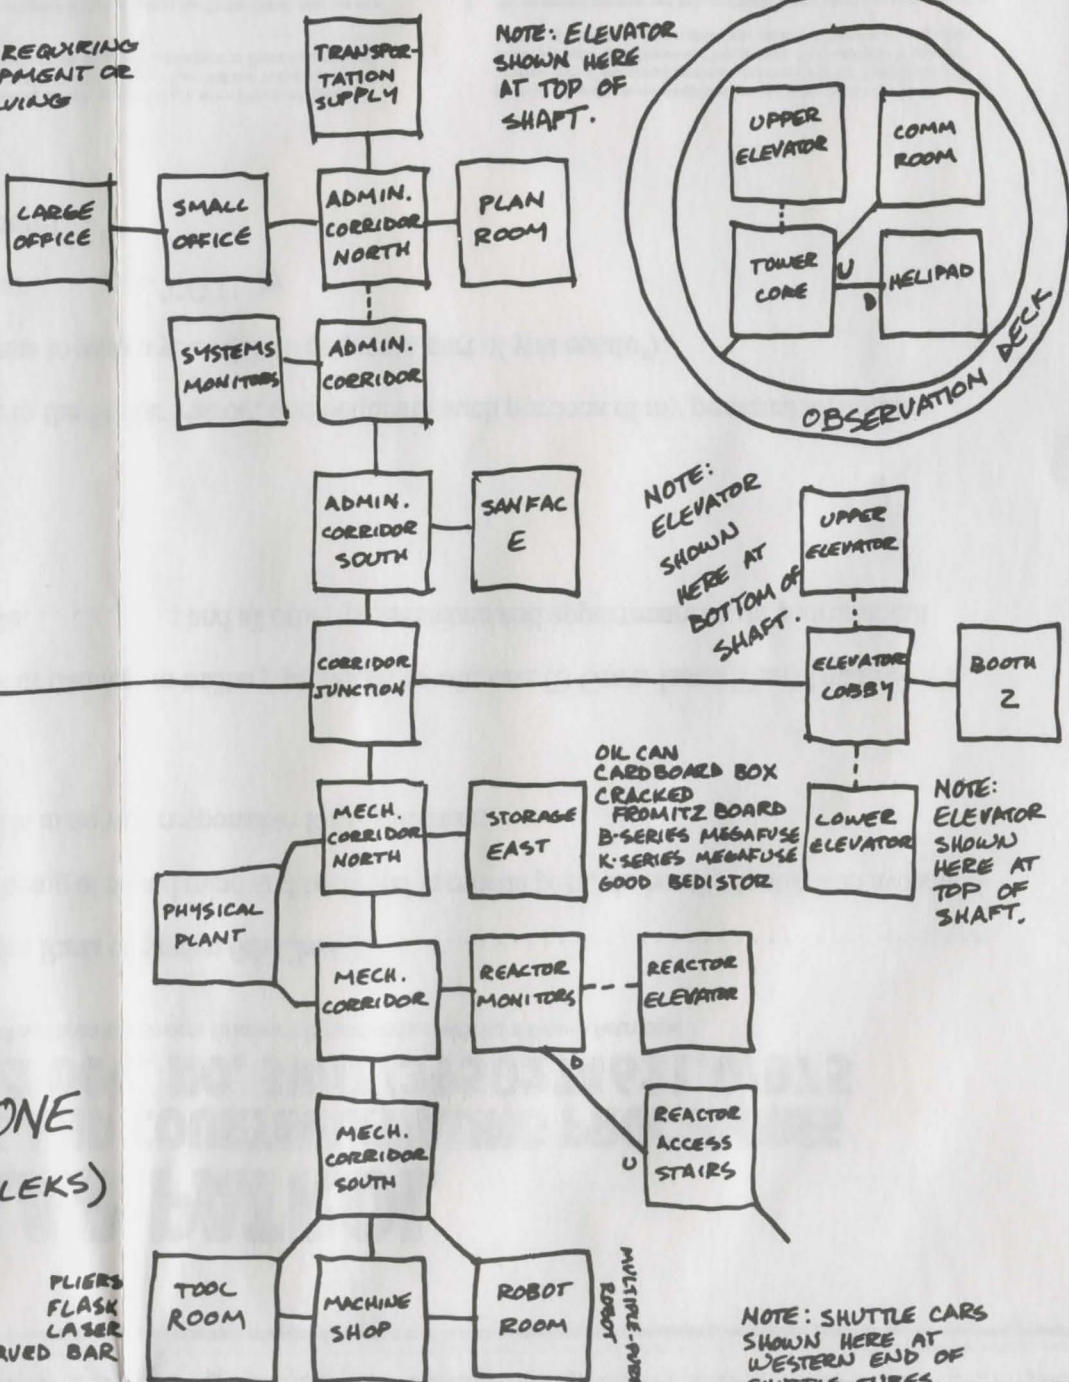 REQUIRING
OR
TRANSPOR-
TATION
SUPPLY
NOTE: ELEVATOR
SHOWN HERE
AT TOP OF
SHAFT.
UPPER
ELEVATOR
COMM
ROOM
LARGE
OFFICE
SMALL
OFFICE
ADMIN.
CORRIDOR
NORTH
PLAN
ROOM
TOWER
CORE
U
D
HELIPAD
OBSERVATION DECK
SYSTEMS
MONITORS
ADMIN.
CORRIDOR
ADMIN.
CORRIDOR
SOUTH
SANFAC
E
NOTE:
ELEVATOR
SHOWN
HERE AT
BOTTOM OF
SHAFT.
UPPER
ELEVATOR
CORRIDOR
JUNCTION
ELEVATOR
LOBBY
BOOTH
2
MECH.
CORRIDOR
NORTH
STORAGE
EAST
OIL CAN
CARDBOARD BOX
CRACKED
FROMITZ BOARD
B-SERIES MEGAFUSE
K-SERIES MEGAFUSE
GOOD BEDISTOR
LOWER
ELEVATOR
NOTE:
ELEVATOR
SHOWN
HERE AT
TOP OF
SHAFT.
PHYSICAL
PLANT
MECH.
CORRIDOR
REACTOR
MONITORS
REACTOR
ELEVATOR
D
U
REACTOR
ACCESS
STAIRS
ONE
LEKS)
MECH.
CORRIDOR
SOUTH
PLIERS
FLASK
LASER
BAR
TOOL
ROOM
MACHINE
SHOP
ROBOT
ROOM
ROBOT
NOTE: SHUTTLE CARS
SHOWN HERE AT
WESTERN END OF
SHUTTLE TUBES